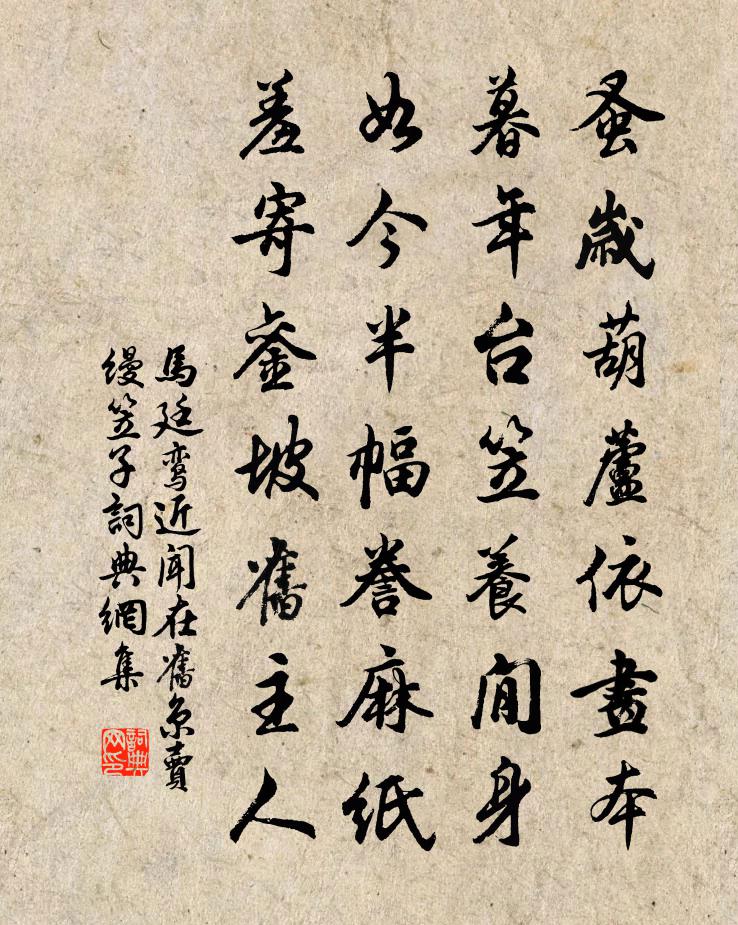 蚤歲葫蘆依畫本
暮年台笠養閒身
如今半幅誊麻紙
羞寄銮坡舊主人
馬廷鸾近聞在舊京賣
縵笠子詞典網集
詞典网印